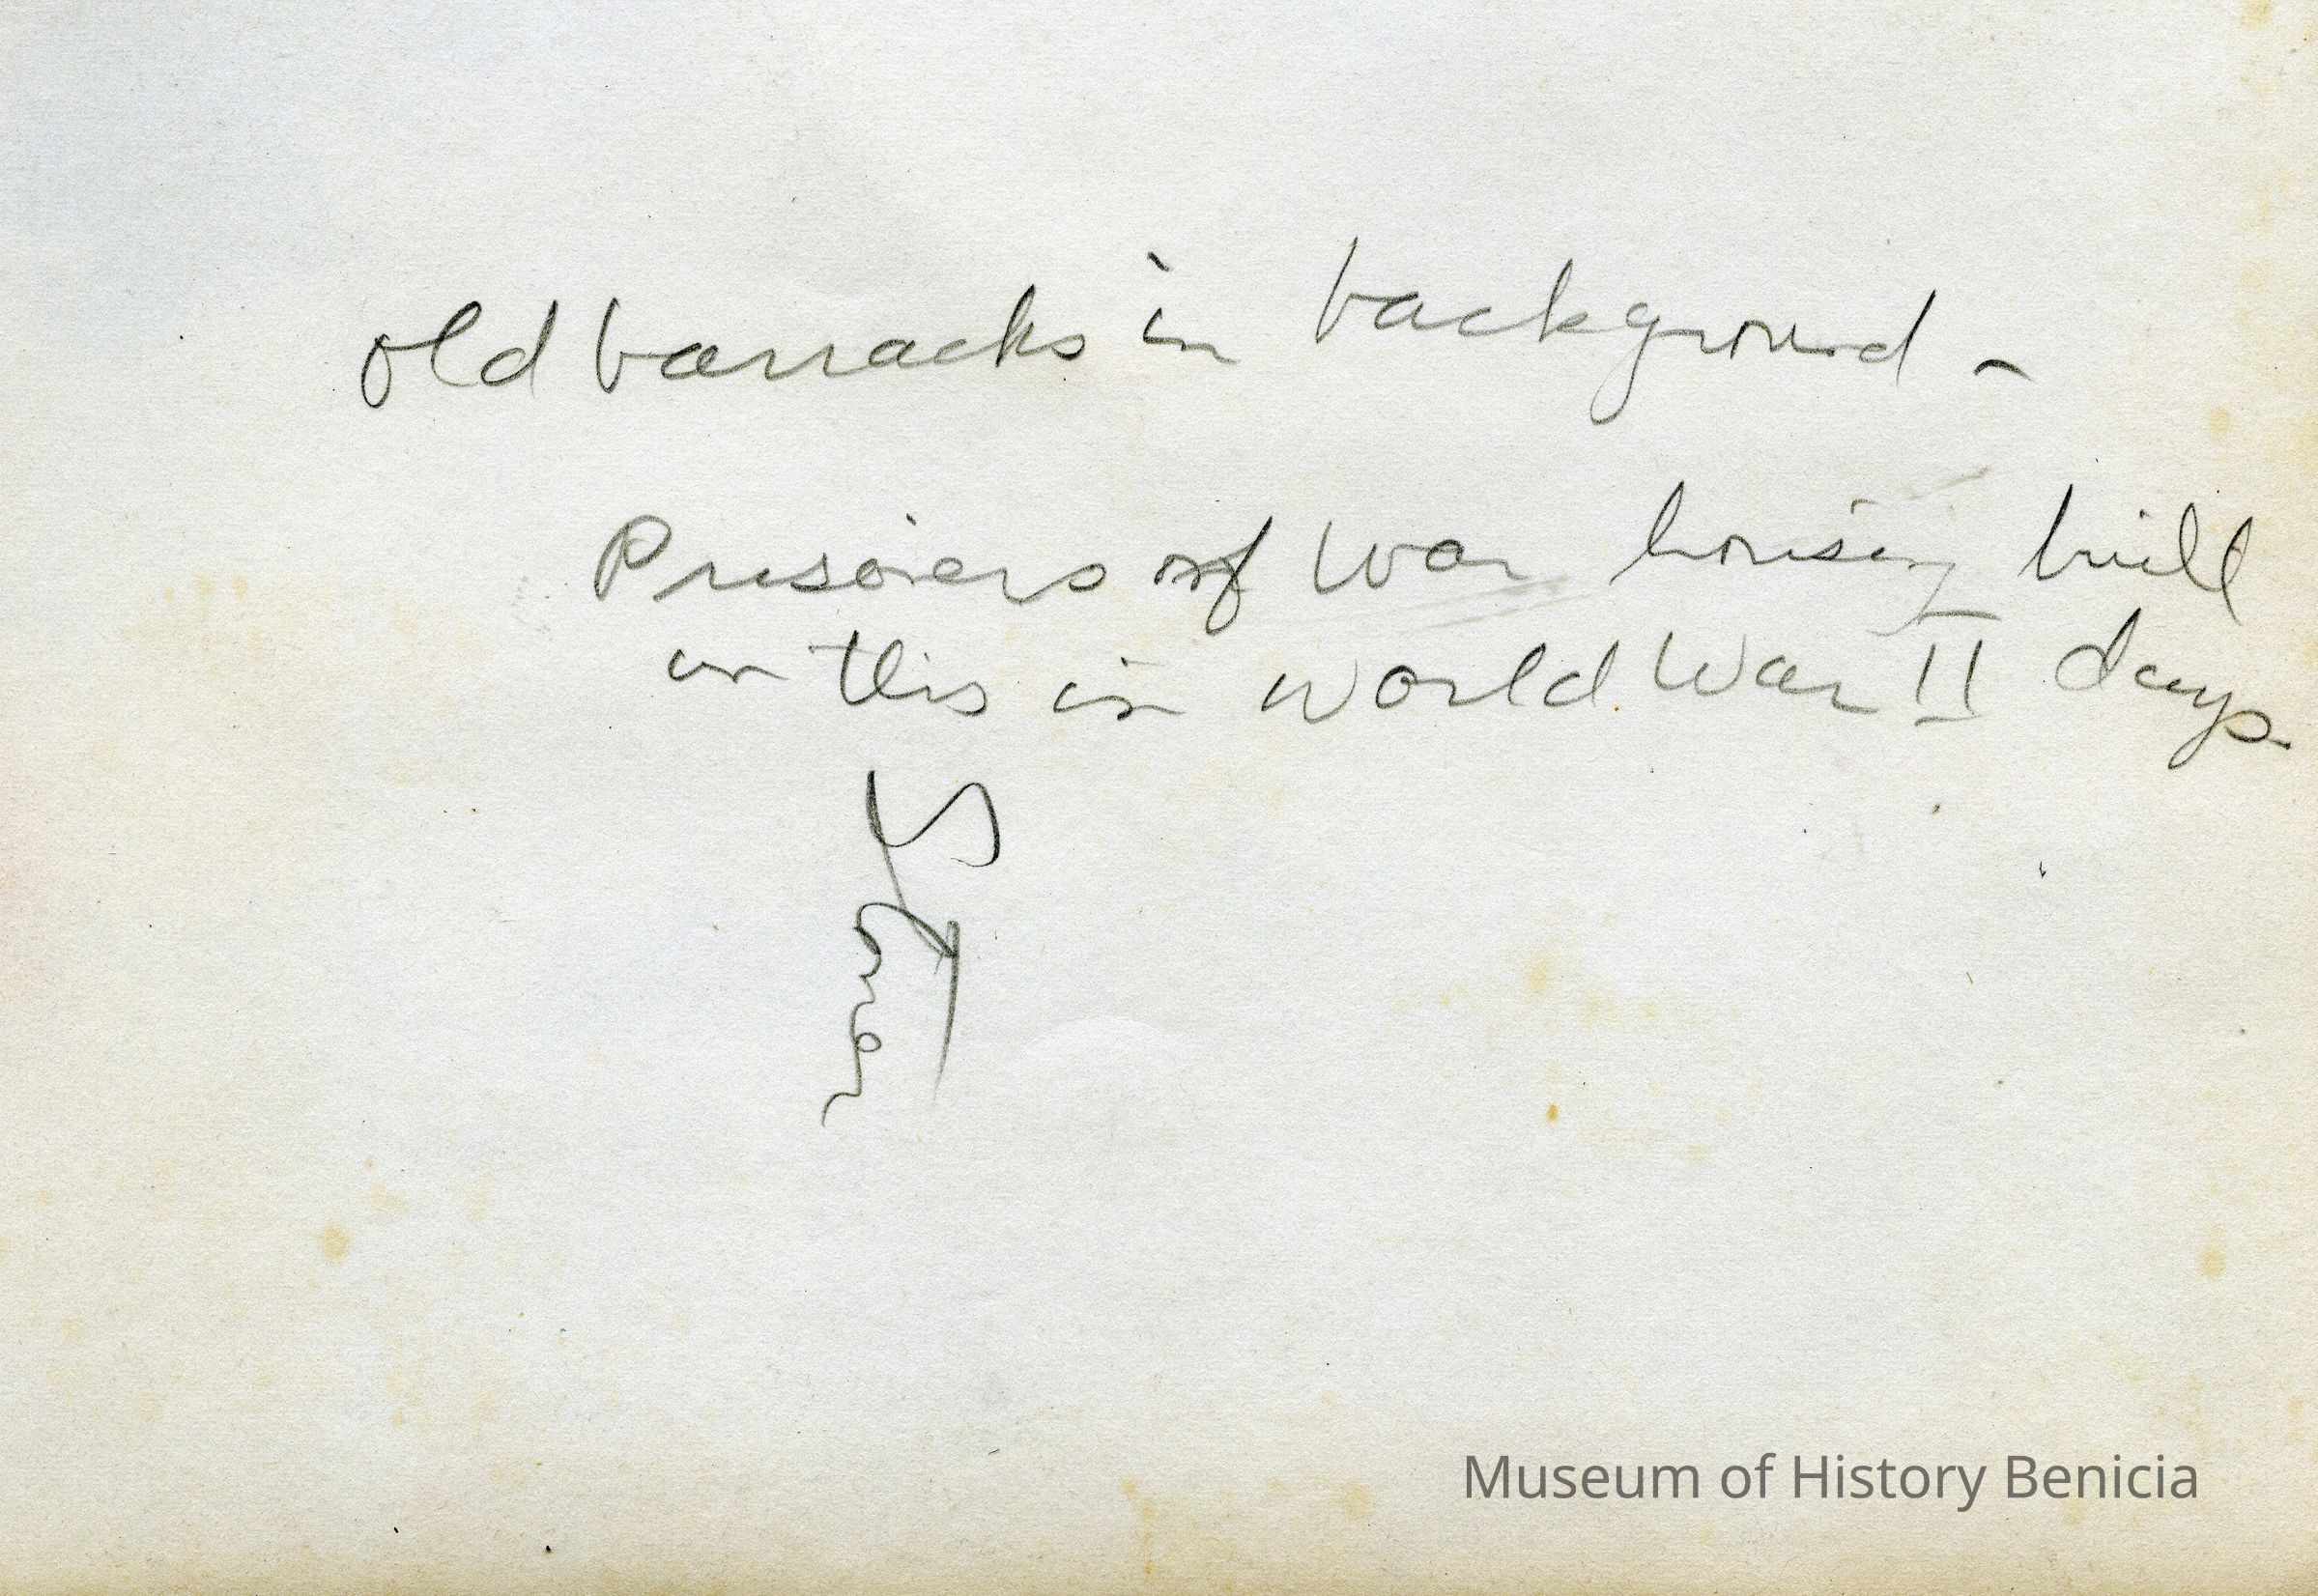 old barracks in background -
Prisoners of War housing built
in this in World War II days.
Museum of History Benicia